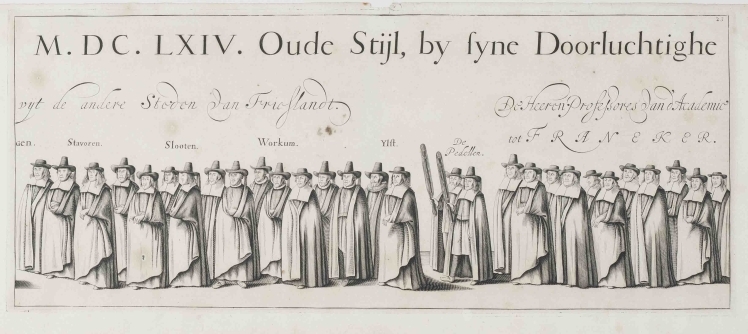 M. DC. LXIV. Oude Stijl, by ſyne Doorluchtighe
vyt de andere Steden van Frieslandt.
De Heeren Profeſſores van d'Academie
tot FRANEKER.
gen. Stavoren. Slooten. Workum. Ylſt.
De
Pedellen.